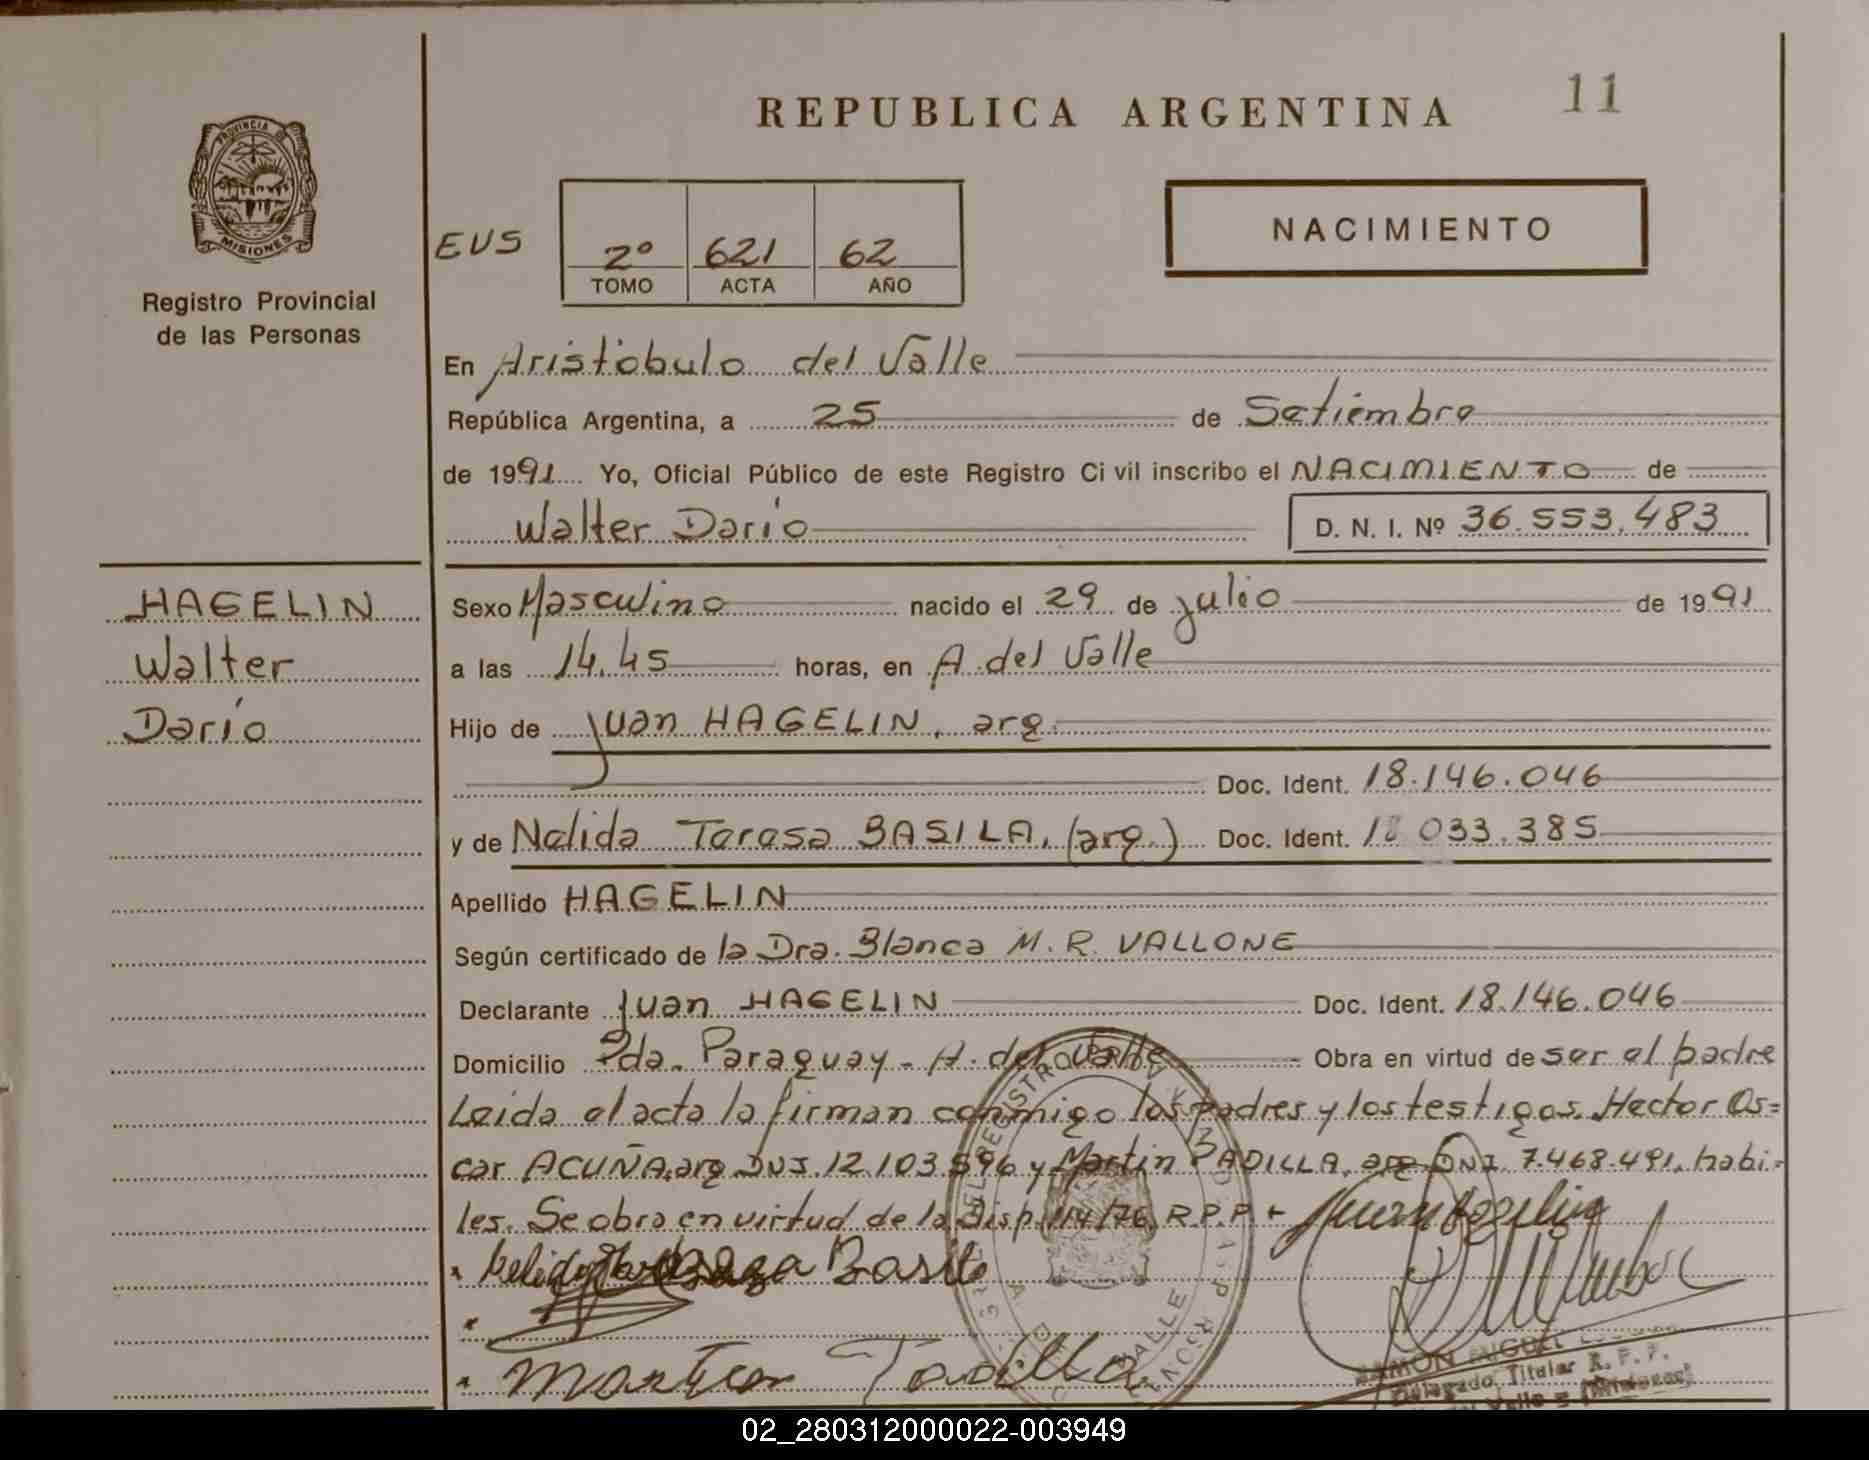 11
REPUBLICA ARGENTINA
PROVINCIA DE
MISIONES
Registro Provincial
de las Personas
NACIMIENTO
EUS 2º 621 62
TOMO ACTA AÑO
En Aristóbulo del Valle
República Argentina, a 25 de Setiembre
de 1991 Yo, Oficial Público de este Registro Ci vil inscribo el NACIMIENTO de
Walter Darío D. N. I. Nº 36.553.483
HAGELIN
Walter
Darío
Sexo Masculino nacido el 29 de julio de 1991
a las 14.45 horas, en A. del Valle
Hijo de Juan HAGELIN, arg.
Doc. Ident. 18.146.046
y de Nelida Teresa BASILA, (arg.) Doc. Ident. 033.385
Apellido HAGELIN
Según certificado de la Dra. Blanca M. R. VALLONE
Declarante Juan HAGELIN Doc. Ident. 18.146.046
Domicilio Pda. Paraguay - A. del Valle Obra en virtud de ser el padre
Leída el acta la firman conmigo los padres y los testigos. Hector Os=
car ACUÑA, arg. DNI. 12.103.596 y Martin PADILLA, arg. DNI. 7.468.491, habi=
les. Se obra en virtud de la Disp. 114/76 R.P.P.
Juan Hagelin
Martin Padilla
RAMON MIGUEL
Delegado Titular R. P. P.
del Valle = (Misiones)
02_280312000022-003949